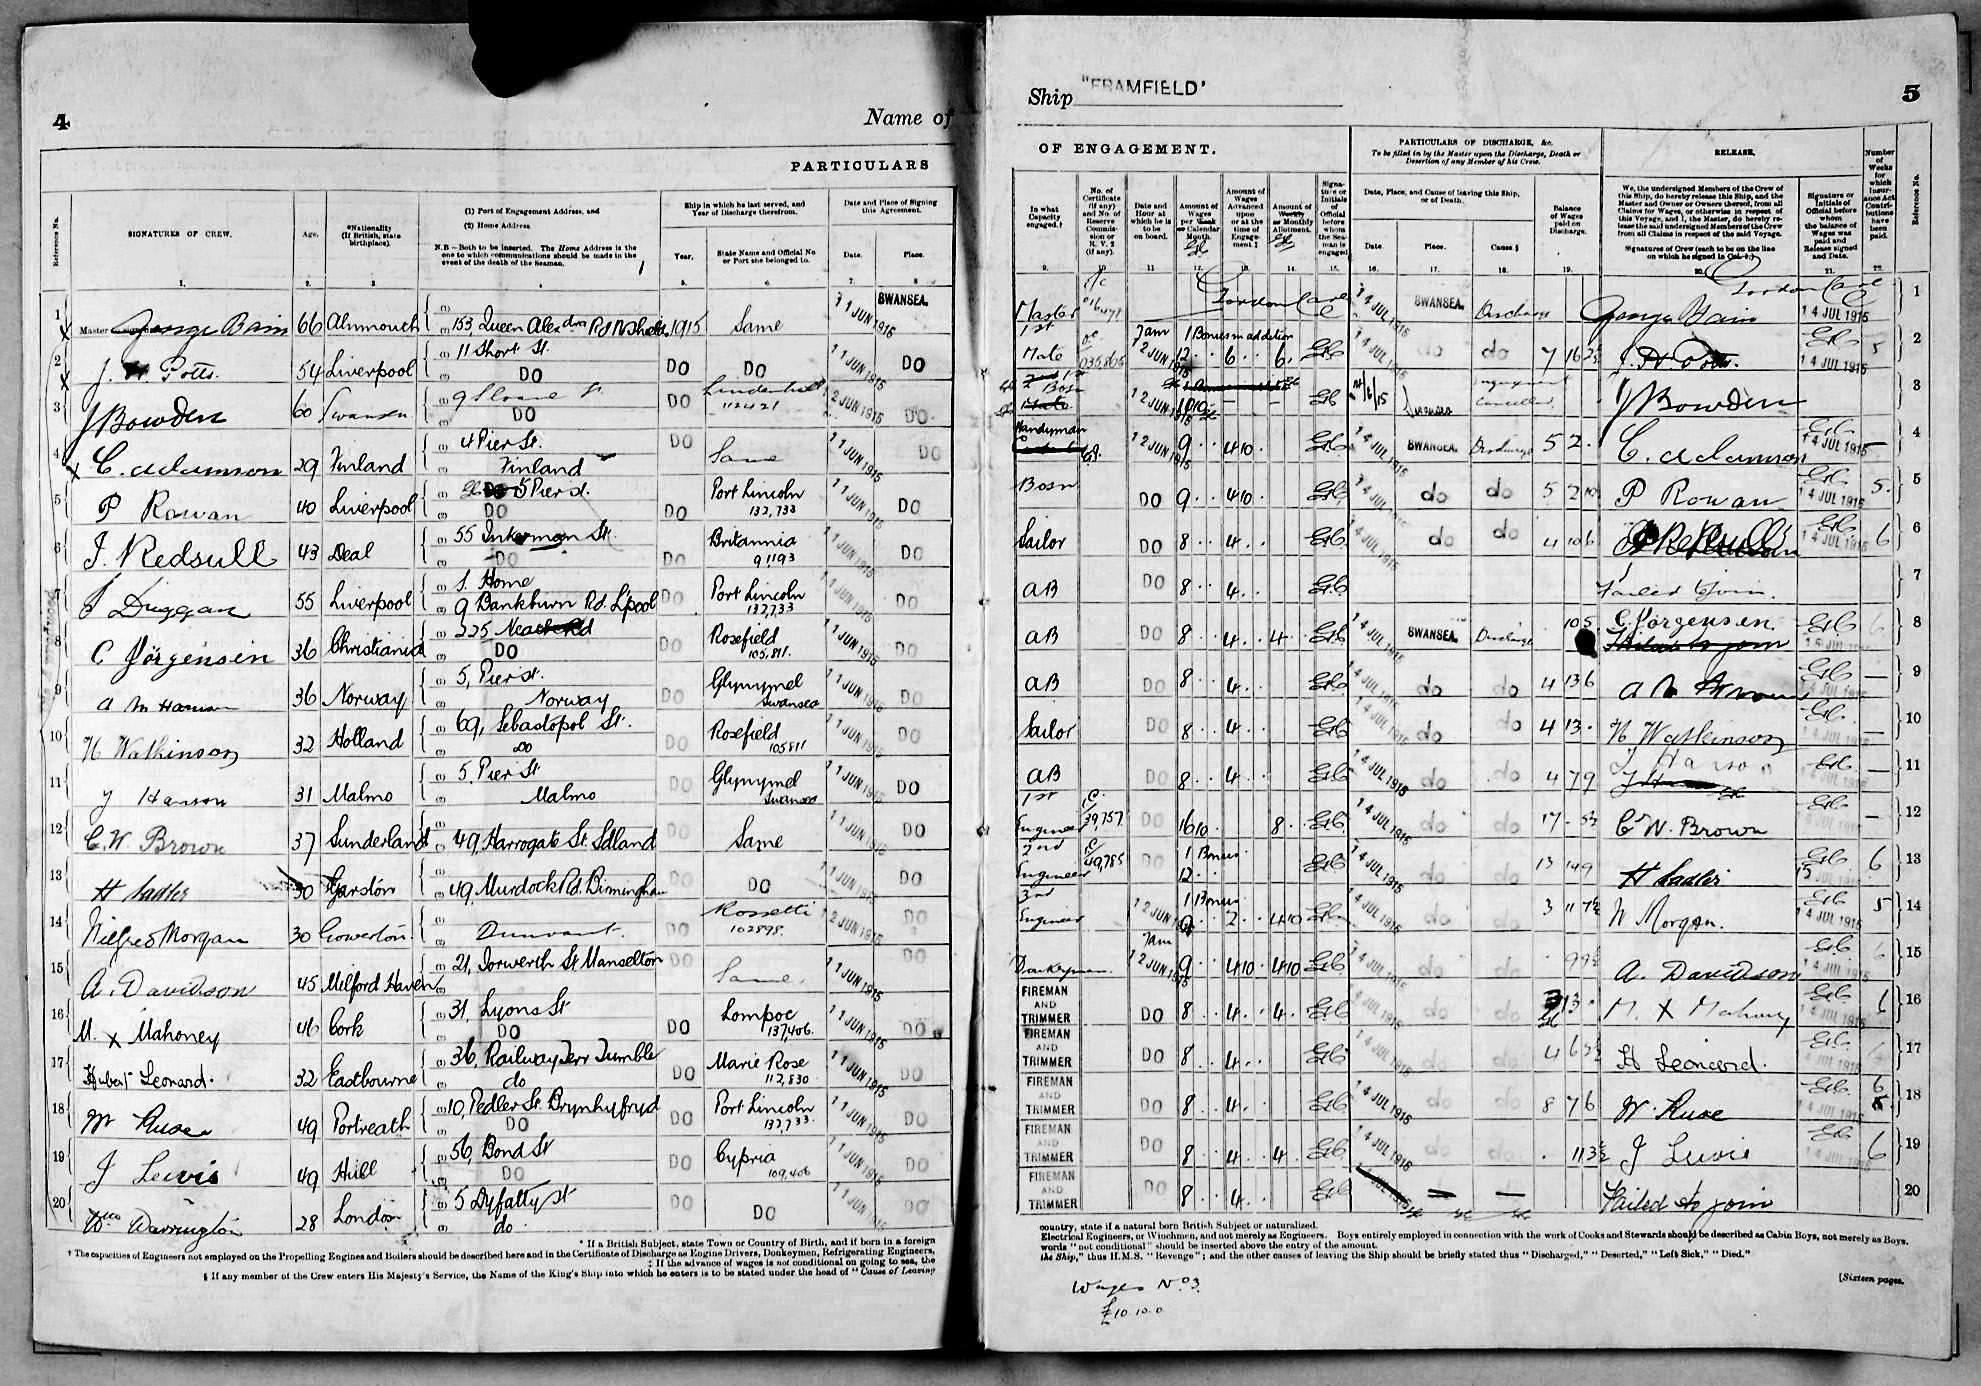 4
Name of
PARTICULARS
Reference No.
SIGNATURES OF CREW.
Age.
*Nationality (If British, state birthplace).
(1) Port of Engagement Address, and
(2) Home Address
N.B.—Both to be inserted. The Home Address is the one to which communications should be made in the event of the death of the Seaman.
Ship in which he last served, and Year of Discharge therefrom.
Year.
State Name and Official No or Port she belonged to.
Date and Place of Signing this Agreement.
Date.
Place.
1. 2. 3. 4 5. 6. 7. 8
1 George Bain 66 Alnmouth 153, Queen Alexdra Rd N Shields 1915 Same 11 JUN 1915 SWANSEA.
2 J. H Potts. 54 Liverpool 11 Short St. DO DO DO 11 JUN 1915 DO
3 J Bowden 60 Swansea 9 Sloane St DO DO 112421 12 JUN 1915 DO
4 C. Adamson 29 Finland 4 Pier St. Finland DO Same 11 JUN 1915 DO
5 P Rowan 40 Liverpool 5 Pier St. DO DO Port Lincoln 132,733 11 JUN 1915 DO
6 J. Redsull 43 Deal 55 Inkerman St. DO DO Britannia 91193 11 JUN 1915 DO
7 J Duggan 55 Liverpool S. Home 9 Bankburn Rd. L'pool DO Port Lincoln 132,733 11 JUN 1915 DO
8 C Jörgensen 36 Christiania 225 Neath Rd DO DO Rosefield 105,811. 11 JUN 1915 DO
9 A M Hanson 36 Norway 5, Pier St. Norway DO Glynymel Swansea 11 JUN 1915 DO
10 H Watkinson 32 Holland 69, Sebastopol St. DO DO Rosefield 105811 11 JUN 1915 DO
11 J Hanson 31 Malmo 5, Pier St Malmo DO Glynymel Swansea 11 JUN 1915 DO
12 C. W. Brown 37 Sunderland 49, Harrogate St. Sdland Same 11 JUN 1915 DO
13 H Sadler 30 Garston 49, Murdock Rd. Birmingham DO DO 11 JUN 1915 DO
14 Wilfred Morgan 30 Gowerton Dunvant. DO Rossetti 102898. 12 JUN 1915 DO
15 A. Davidson 45 Milford Haven 21, Jorwerth St Manselton DO Same. 11 JUN 1915 DO
16 M. X Mahoney 46 Cork 31, Lyons St DO DO Lompoc 137,406. 11 JUN 1915 DO
17 Hubert Leonard. 32 Eastbourne 36, Railway Terr Tumble do DO Marie Rose 112,830 11 JUN 1915 DO
18 W Ruse 49 Portreath 10, Pedler St. Brynhyfryd DO DO Port Lincoln 132,733. 11 JUN 1915 DO
19 J Lewis 49 Hull 56, Bond St DO DO Cypria 109,406 11 JUN 1915 DO
20 Wm Warrington 28 London 5 Dyfatty St do. DO DO 11 JUN 1915 DO
* If a British Subject, state Town or Country of Birth, and if born in a foreign
† The capacities of Engineers not employed on the Propelling Engines and Boilers should be described here and in the Certificate of Discharge as Engine Drivers, Donkeymen, Refrigerating Engineers,
‡ If the advance of wages is not conditional on going to sea, the
§ If any member of the Crew enters His Majesty's Service, the Name of the King's Ship into which he enters is to be stated under the head of "Cause of Leaving
Ship "FRAMFIELD"
5
OF ENGAGEMENT.
PARTICULARS OF DISCHARGE, &c.
To be filled in by the Master upon the Discharge, Death or Desertion of any Member of his Crew.
RELEASE.
Number of Weeks for which Insurance Act Contributions have been paid.
Reference No.
In what Capacity engaged.†
No. of Certificate (if any) and No. of Reserve Commission or R.V.2 (if any).
Date and Hour at which he is to be on board.
Amount of Wages per Week or Calendar Month.
Amount of Wages Advanced upon or at the time of Engagement.‡
Amount of Weekly or Monthly Allotment.
Signature or Initials of Official before whom the Seaman is engaged
Date, Place, and Cause of leaving this Ship, or of Death.
Date.
Place.
Cause.§
Balance of Wages paid on Discharge.
We, the undersigned Members of the Crew of this Ship, do hereby release this Ship, and the Master and Owner or Owners thereof, from all Claims for Wages, or otherwise in respect of this Voyage, and I, the Master, do hereby release the said undersigned Members of the Crew from all Claims in respect of the said Voyage.
Signatures of Crew (each to be on the line on which he signed in Col. 1.)
Signature or Initials of Official before whom the balance of Wages was paid and Release signed and Date.
9. 10 11 12. 13. 14. 15. 16. 17. 18. 19. 20. 21. 22.
Master 14 JUL 1915 SWANSEA. Discharge George Bain 14 JUL 1915 1
1st Mate 035,606 7am 12 JUN 1915 1 Bonus in addition 12 6 6 14 JUL 1915 do do 7 16 J. H. Potts. 14 JUL 1915 5 2
Bosn Mate 12 JUN 1915 10 10 Swansea Cancelled J Bowden 3
Handyman 12 JUN 1915 9 4 10 14 JUL 1915 SWANSEA. Discharge 5 2 C. Adamson 14 JUL 1915 — 4
Bosn DO 9 4 10 14 JUL 1915 do do 5 2 10 P Rowan 14 JUL 1915 5 5
Sailor DO 8 4 14 JUL 1915 do do 4 10 6 14 JUL 1915 6 6
AB DO 8 4 Failed to join. 7
AB DO 8 4 4 14 JUL 1915 SWANSEA. Discharge 10 5 C. Jörgensen. Failed to join 14 JUL 1915 8
AB DO 8 4 14 JUL 1915 do do 4 13 6 14 JUL 1915 — 9
Sailor DO 8 4 14 JUL 1915 do do 4 13 H Watkinson 14 JUL 1915 — 10
AB DO 8 4 14 JUL 1915 do do 4 7 9 J Hanson — 11
1st Engineer 39,757 DO 16 10 8 14 JUL 1915 do do 17 C W. Brown — 12
2nd Engineer 49,785 DO 1 Bonus 12 14 JUL 1915 do do 13 14 9 H Sadler 15 6 13
3rd Engineer 12 JUN 1915 1 Bonus 9 2 4 10 14 JUL 1915 do do 3 11 7½ W Morgan. 14 JUL 1915 5 14
Donkeyman 7am 12 JUN 1915 9 4 10 4 10 14 JUL 1915 do do A. Davidson 14 JUL 1915 15
FIREMAN AND TRIMMER DO 8 4 4 14 JUL 1915 do do 13 M. X Mahony 14 JUL 1915 6 16
FIREMAN AND TRIMMER DO 8 4 14 JUL 1915 do do 4 6 H Leonard. 14 JUL 1915 17
FIREMAN AND TRIMMER DO 8 4 14 JUL 1915 do do 8 7 6 W. Ruse 14 JUL 1915 6 18
FIREMAN AND TRIMMER DO 8 4 4 14 JUL 1915 do do 11 3½ J Lewis 14 JUL 1915 6 19
FIREMAN AND TRIMMER DO 8 4 Failed to join 20
country, state if a natural born British Subject or naturalized.
Electrical Engineers, or Winchmen, and not merely as Engineers. Boys entirely employed in connection with the work of Cooks and Stewards should be described as Cabin Boys, not merely as Boys.
words "not conditional" should be inserted above the entry of the amount.
the Ship," thus H.M.S. "Revenge"; and the other causes of leaving the Ship should be briefly stated thus "Discharged," "Deserted," "Left Sick," "Died."
[Sixteen pages.
Wages No 3.
£10.10.0